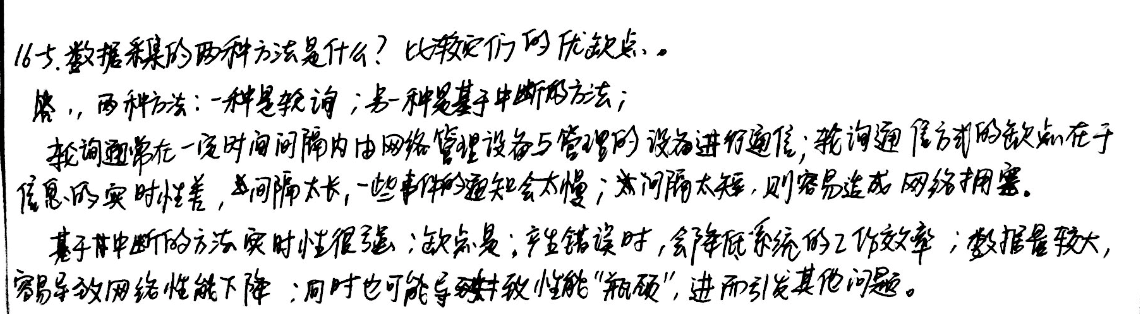 16-5.数据采集的两种方法是什么？比较它们的优缺点。
答：两种方法：一种是轮询；另一种是基于中断的方法；
轮询通常在一定时间间隔内由网络管理设备与管理的设备进行通信；轮询通信方式的缺点在于
信息的实时性差，间隔太长，一些事件的通知会太慢；若间隔太短，则容易造成网络拥塞。
基于中断的方法实时性很强；缺点是：产生错误时，会降低系统的工作效率；数据量较大，
容易导致网络性能下降；同时也可能导致性能“瓶颈”，进而引发其他问题。